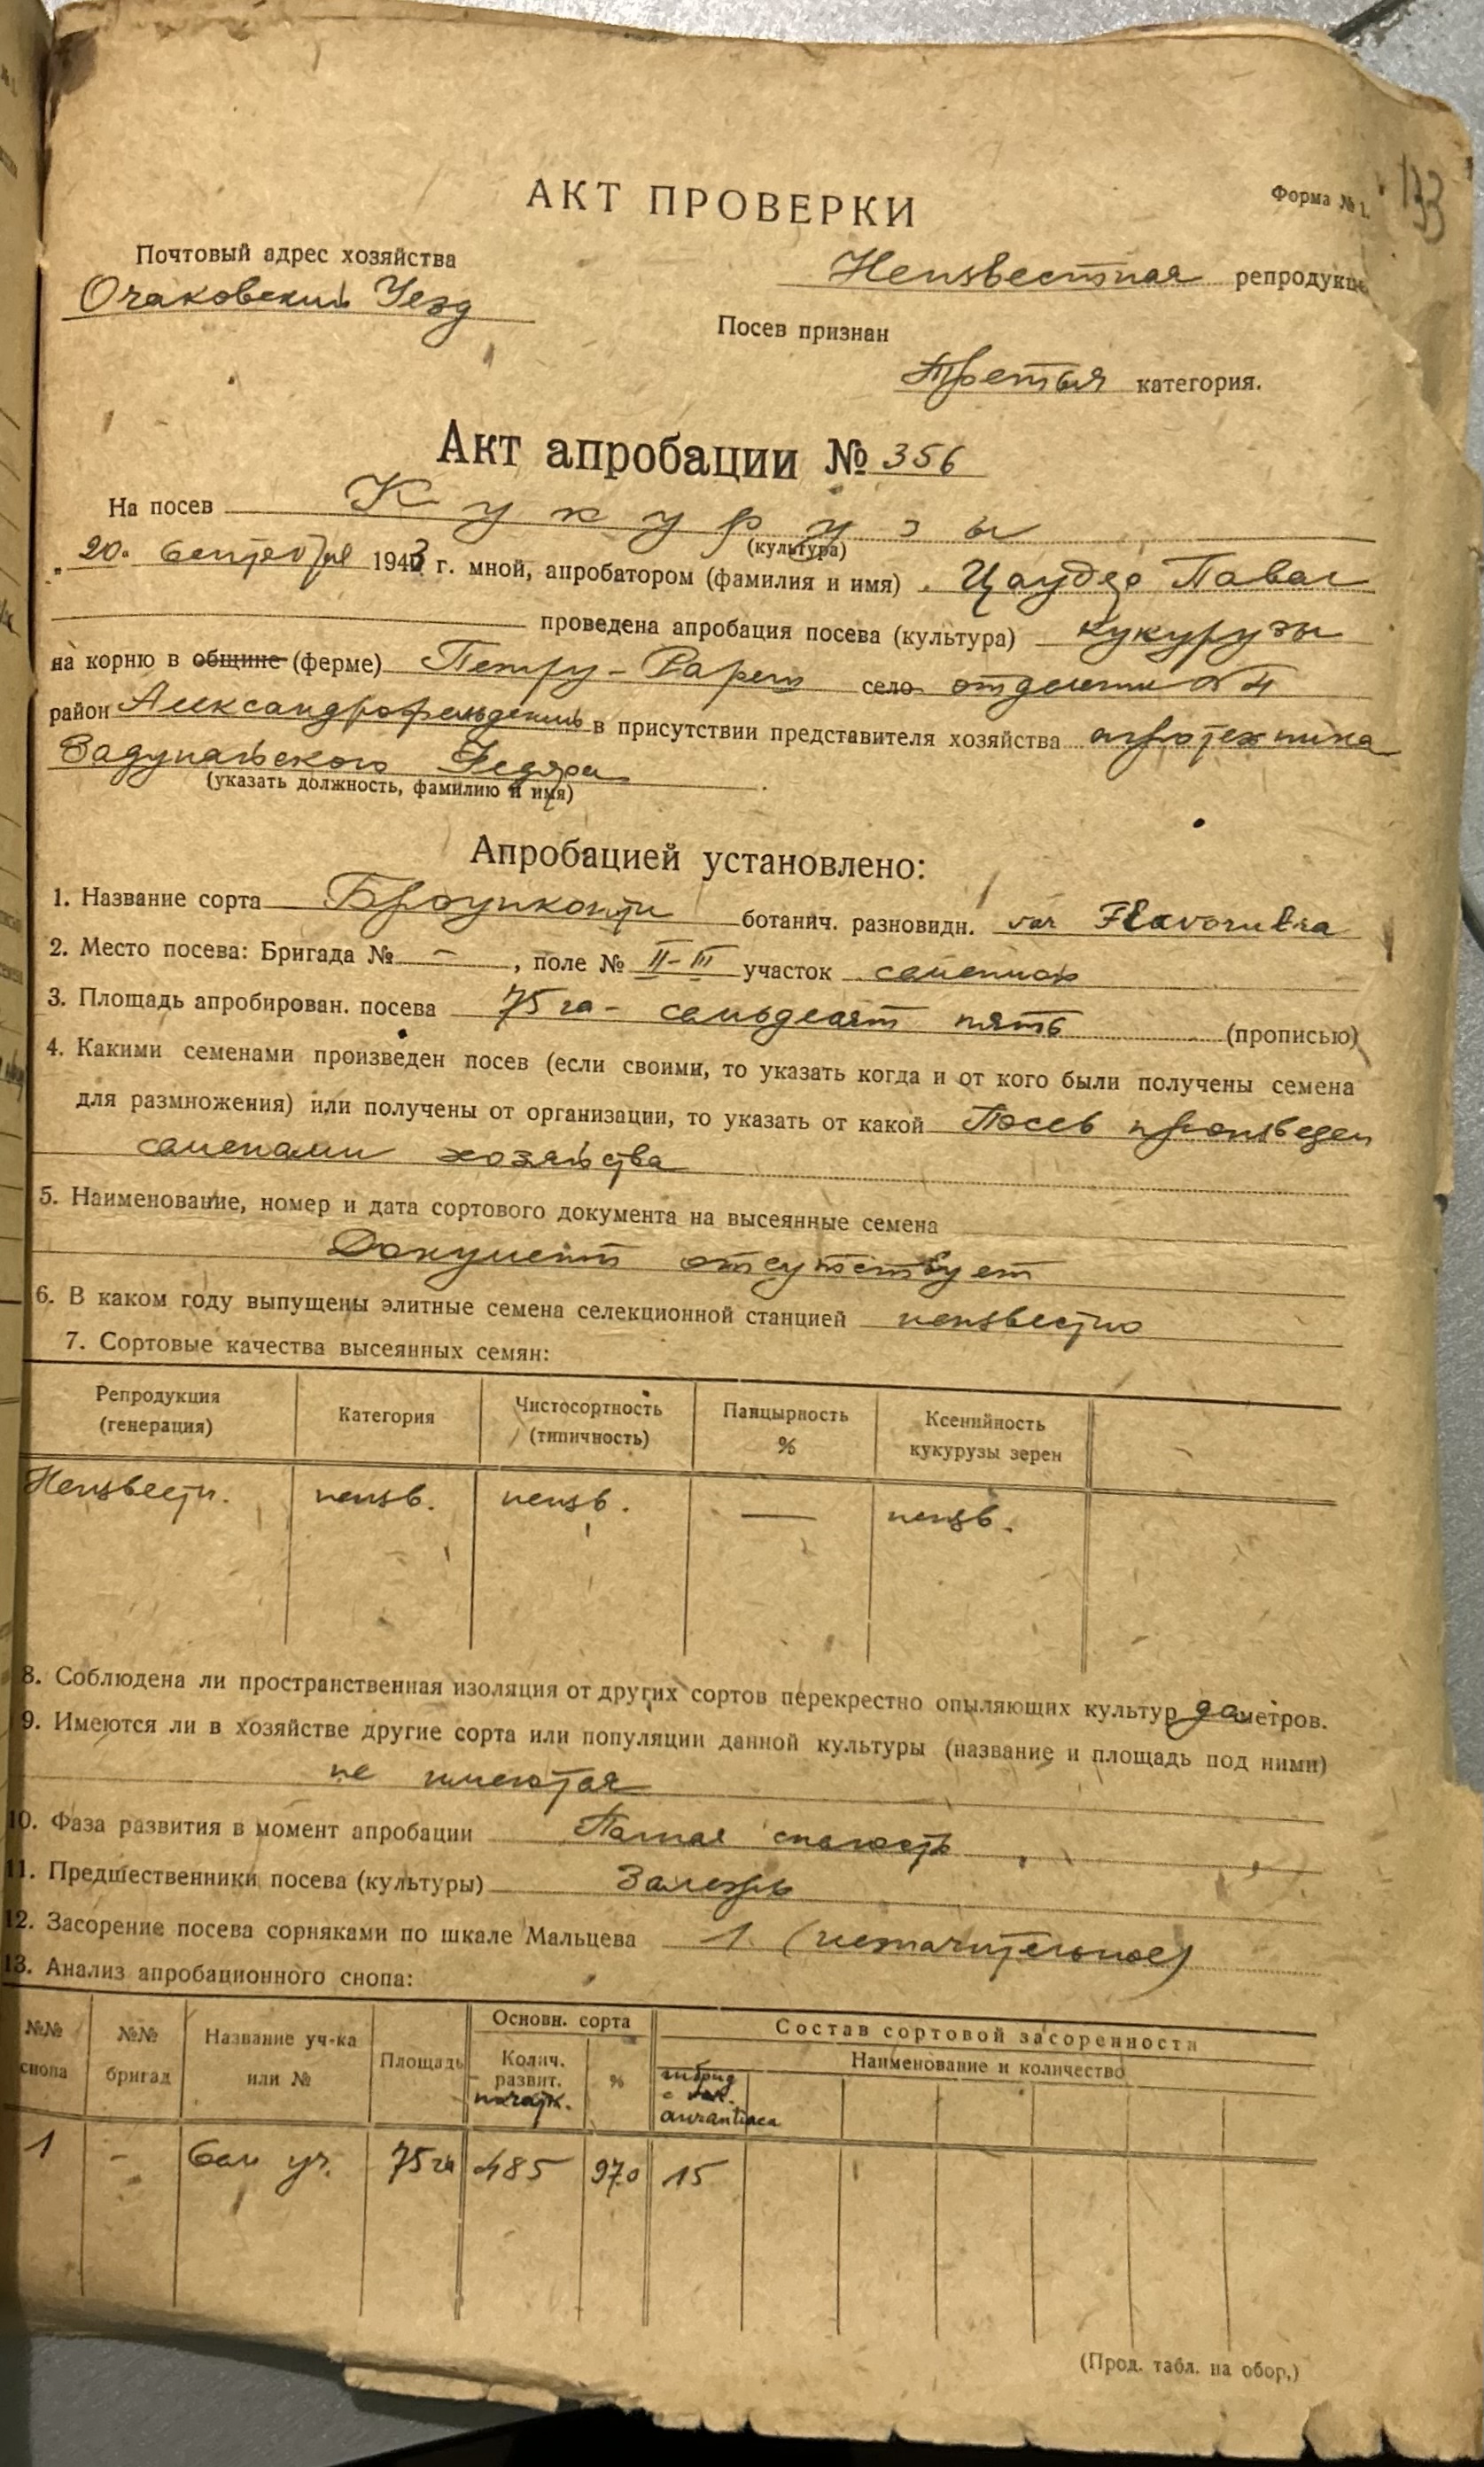 133
АКТ ПРОВЕРКИ
Форма № 1.
Почтовый адрес хозяйства
Очаковский Уезд
Неизвестная репродукц
Посев признан
Третья категория.
Акт апробации № 356
На посев Кукурузы
(культура)
„20. сентября 1943 г. мной, апробатором (фамилия и имя) Цаудер Павел
проведена апробация посева (культура) кукурузы
на корню в общине (ферме) Петру-Рареш село отделение № 4
район Александрофельдский в присутствии представителя хозяйства агротехника
Задунайского Федора
(указать должность, фамилию и имя)
Апробацией установлено:
1. Название сорта Броунконти ботанич. разновидн. var Flavorubra
2. Место посева: Бригада № – , поле № II-III участок семенной
3. Площадь апробирован. посева 75 га - семьдесят пять (прописью)
4. Какими семенами произведен посев (если своими, то указать когда и от кого были получены семена
для размножения) или получены от организации, то указать от какой Посев произведен
семенами хозяйства
5. Наименование, номер и дата сортового документа на высеянные семена
Документ отсутствует
6. В каком году выпущены элитные семена селекционной станцией неизвестно
7. Сортовые качества высеянных семян:
Репродукция (генерация) Категория Чистосортность (типичность) Панцырность % Ксенийность кукурузы зерен
Неизвестн. неизв. неизв. — неизв.
8. Соблюдена ли пространственная изоляция от других сортов перекрестно опыляющих культур да метров.
9. Имеются ли в хозяйстве другие сорта или популяции данной культуры (название и площадь под ними)
не имеются
10. Фаза развития в момент апробации Полная спелость
11. Предшественники посева (культуры) Залежь
12. Засорение посева сорняками по шкале Мальцева 1 (незначительное)
13. Анализ апробационного снопа:
№№ снопа №№ бригад Название уч-ка или № Площадь Основн. сорта Колич. развит. початк. % Состав сортовой засоренности
Наименование и количество
гибрид с var. aurantiaca
1 - Сем уч. 75 га 485 97.0 15
(Прод. табл. на обор.)